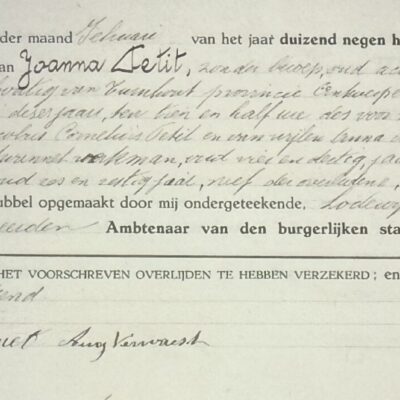 der maand Februari van het jaar duizend negen h
an Joanna Petit, zonder beroep, oud ac
van Turnhout provincie Antwerpe
dezer jaars, ten tien en half ure des voor
Cornelius Petit en van wijlen Anna
werkman, oud drie en dertig jaa
oud zes en zestig jaar, neef der overledene,
ubbel opgemaakt door mij ondergeteekende, Lodewy
Ambtenaar van den burgerlijken sta
HET VOORSCHREVEN OVERLIJDEN TE HEBBEN VERZEKERD ; en
end
Aug Vervaest